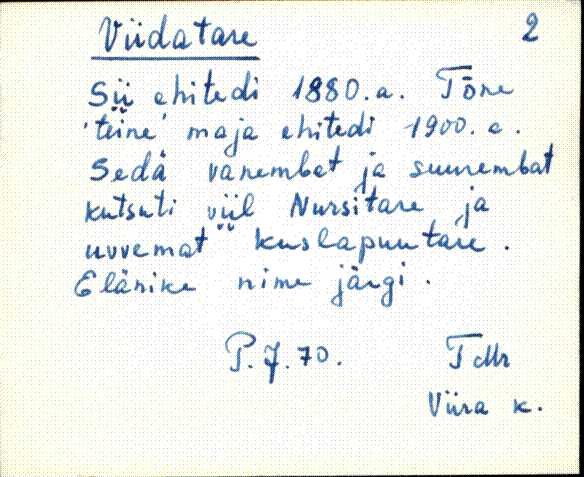 Viidatare
2
Sii ehitedi 1880.a. Tõne
'teine' maja ehitedi 1900.a.
Sedä vanembat ja suurembat
kutsuti viil Nursitare ja
uvvemat Kuslapuutare.
Elänike nime järgi.
P.J.70. TMr
Viira k.